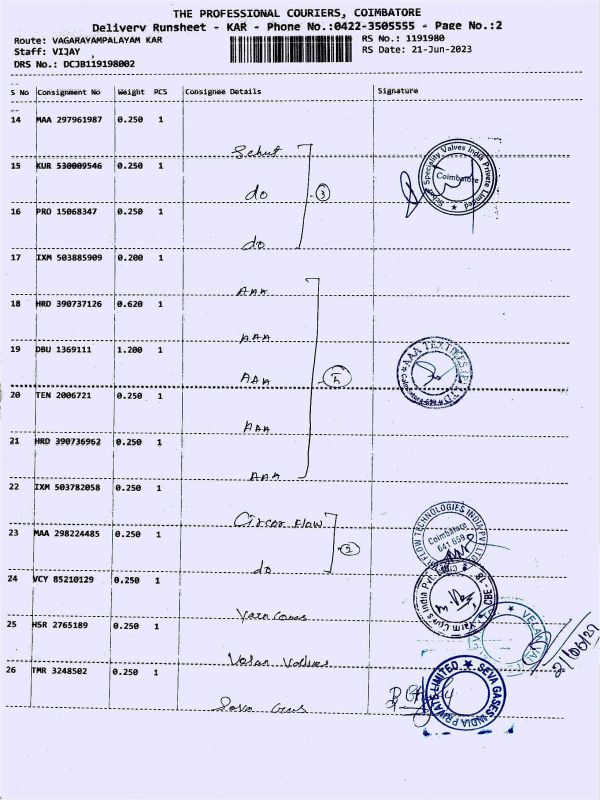 THE PROFESSIONAL COURIERS, COIMBATORE
Delivery Runsheet - KAR - Phone No.:0422-3505555 - Page No.:2
Route: VAGARAYAMPALAYAM KAR
RS No.: 1191980
Staff: VIJAY
RS Date: 21-Jun-2023
DRS No.: DCJB119198002
S No Consignment No Weight PCS Consignee Details Signature
14 MAA 297961987 0.250 1
do
15 KUR 530009546 0.250 1
do
3
16 PRO 15068347 0.250 1
do
17 IXM 503885909 0.200 1
AAA
18 HRD 390737126 0.620 1
AAA
19 DBU 1369111 1.200 1
AAA
5
20 TEN 2006721 0.250 1
AAA
21 HRD 390736962 0.250 1
AAA
22 IXM 503782058 0.250 1
Flow
23 MAA 298224485 0.250 1
do
2
24 VCY 85210129 0.250 1
Yarn Cones
25 HSR 2765189 0.250 1
Velan Valves
26 TMR 3248502 0.250 1
Seva Gas
Speciality Valves India Private Limited
Coimbatore
AAA TEXTILES
FLOW TECHNOLOGIES INDIA PVT LTD
Coimbatore
641 659
India Pvt
CBE
VELAN
SEVA GASES INDIA PRIVATE LIMITED